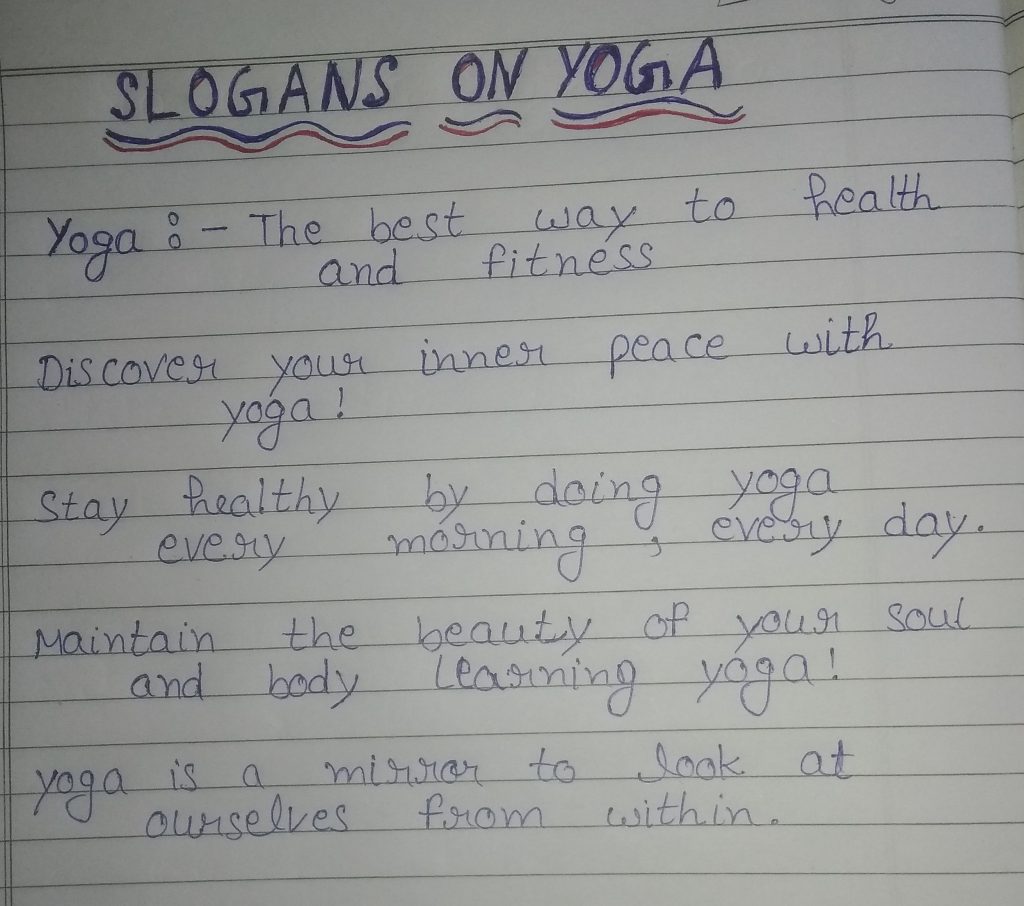 SLOGANS ON YOGA
Yoga :- The best way to health
and fitness
Discover your inner peace with
yoga!
Stay healthy by doing yoga
every morning, every day.
Maintain the beauty of your soul
and body learning yoga!
yoga is a mirror to look at
ourselves from within.